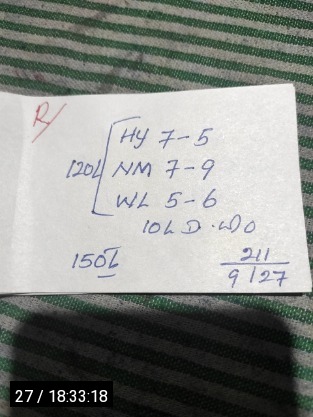 R/
HY 7-5
120L NM 7-9
WL 5-6
10L D.W0
150L
211
9/27
27 / 18:33:18